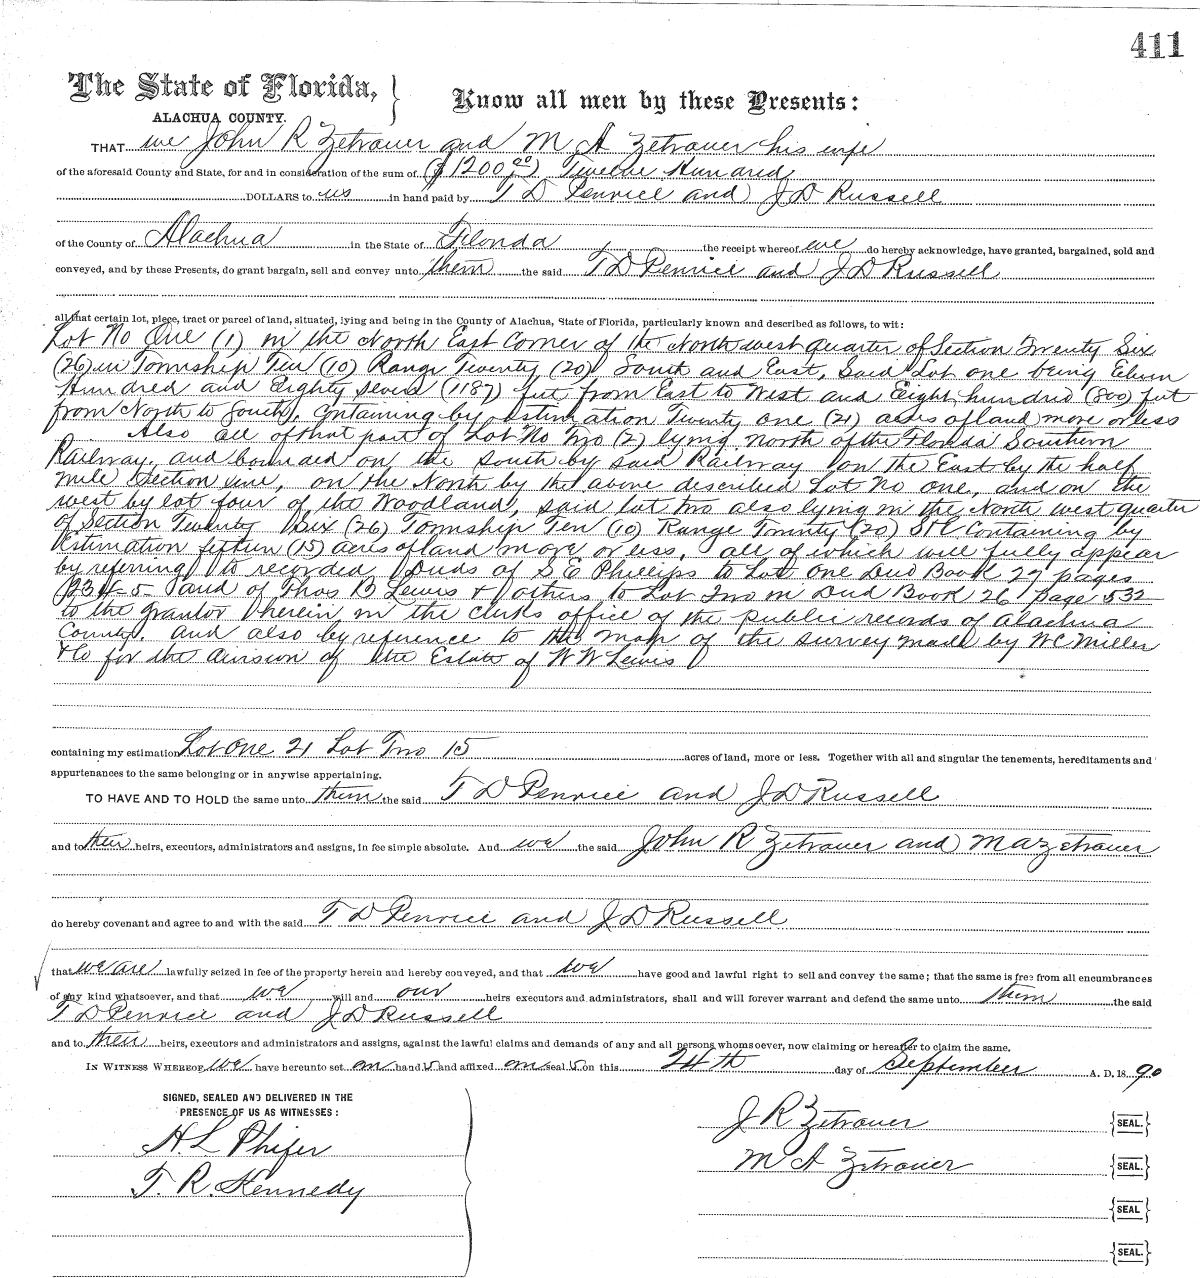 411
The State of Florida,
ALACHUA COUNTY.
Know all men by these Presents:
THAT we John R Zetrouer and M A Zetrouer his wife
of the aforesaid County and State, for and in consideration of the sum of ($1200.00) Twelve Hundred
DOLLARS to us in hand paid by T D Penrice and J D Russell
of the County of Alachua in the State of Florida the receipt whereof we do hereby acknowledge, have granted, bargained, sold and
conveyed, and by these Presents, do grant bargain, sell and convey unto them the said T D Penrice and J D Russell
all that certain lot, piece, tract or parcel of land, situated, lying and being in the County of Alachua, State of Florida, particularly known and described as follows, to wit:
Lot No One (1) in the North East Corner of the North west quarter of Section Twenty Six
(26) in Township Ten (10) Range Twenty (20) South and East, Said Lot one being Eleven
Hundred and Eighty seven (1187) feet from East to West and Eight hundred (800) feet
from North to South, containing by estimation Twenty one (21) acres of land more or less
Also all of that part of Lot No Two (2) lying north of the Florida Southern
Railway, and bounded on the South by said Railway on the East by the half
mile Section line, on the North by the above described Lot No one, and on the
west by lot four of the Woodland, said lot two also lying in the North west quarter
of Section Twenty Six (26) Township Ten (10) Range Twenty (20) S & E Containing by
Estimation fifteen (15) acres of land more or less, all of which will fully appear
by referring to recorded Deeds of S E Phillips to Lot One Deed Book 27 pages
234-5 and of Thos B Lewis & others to Lot Two in Deed Book 26 page 532
to the grantor herein in the clerks office of the public records of Alachua
County, and also by reference to the map of the survey made by W C Miller
& Co for the division of the Estate of W W Lewis
containing my estimation Lot One 21 Lot Two 15 acres of land, more or less. Together with all and singular the tenements, hereditaments and
appurtenances to the same belonging or in anywise appertaining.
TO HAVE AND TO HOLD the same unto them the said T D Penrice and J D Russell
and to their heirs, executors, administrators and assigns, in fee simple absolute. And we the said John R Zetrouer and M A Zetrouer
do hereby covenant and agree to and with the said T D Penrice and J D Russell
that we are lawfully seized in fee of the property herein and hereby conveyed, and that we have good and lawful right to sell and convey the same; that the same is free from all encumbrances
of any kind whatsoever, and that we will and our heirs executors and administrators, shall and will forever warrant and defend the same unto them the said
T D Penrice and J D Russell
and to their heirs, executors and administrators and assigns, against the lawful claims and demands of any and all persons whomsoever, now claiming or hereafter to claim the same.
IN WITNESS WHEREOF, we have hereunto set our hand s and affixed our seal s on this 24th day of September A. D. 1890
SIGNED, SEALED AND DELIVERED IN THE
PRESENCE OF US AS WITNESSES:
H L Phifer
T. R. Kennedy
J R Zetrouer {SEAL.}
M A Zetrouer {SEAL.}
{SEAL.}
{SEAL.}